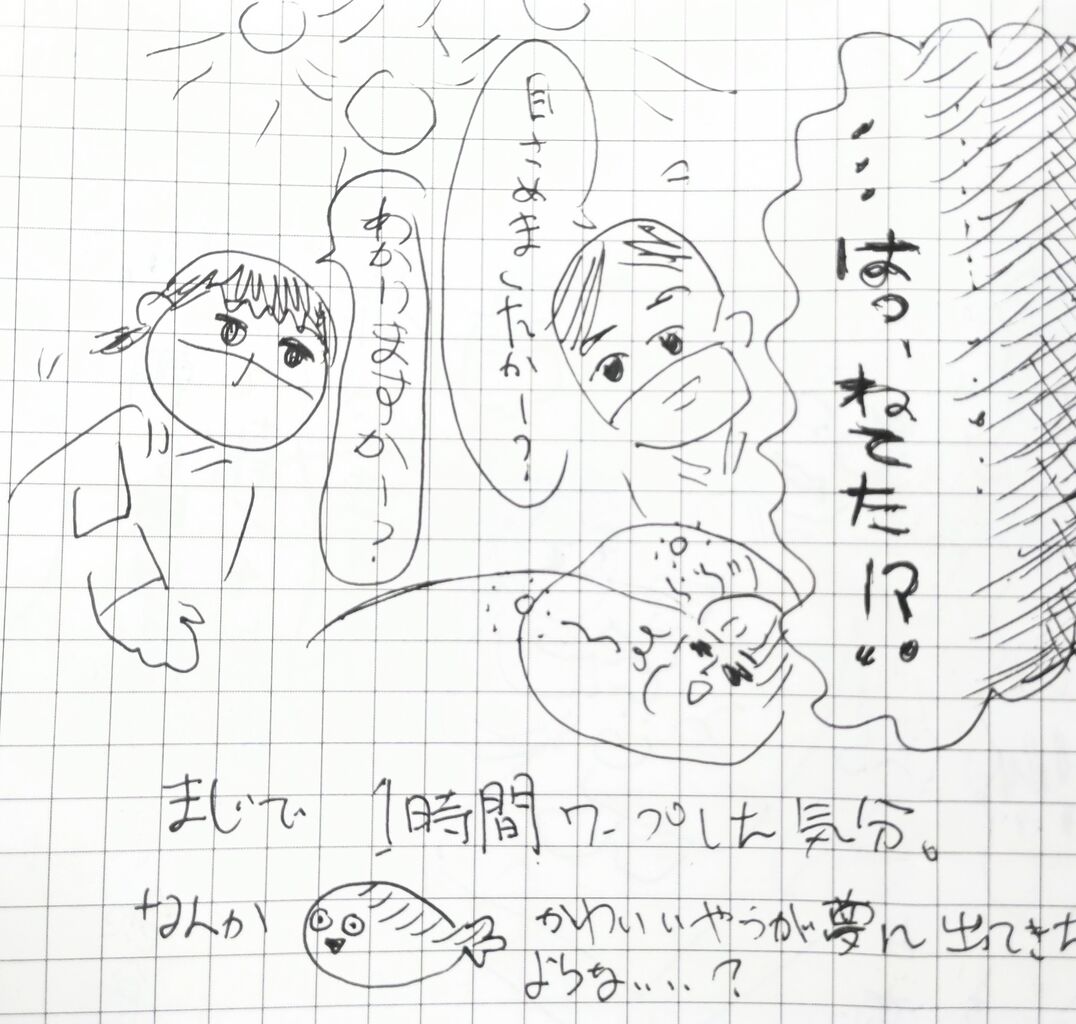 …はっ、ねてた!?
目さめましたかーっ?
わかりますかーっ?
まじで 1時間ワープした気分。
なんか かわいいやつが夢に出てきた
ような……?